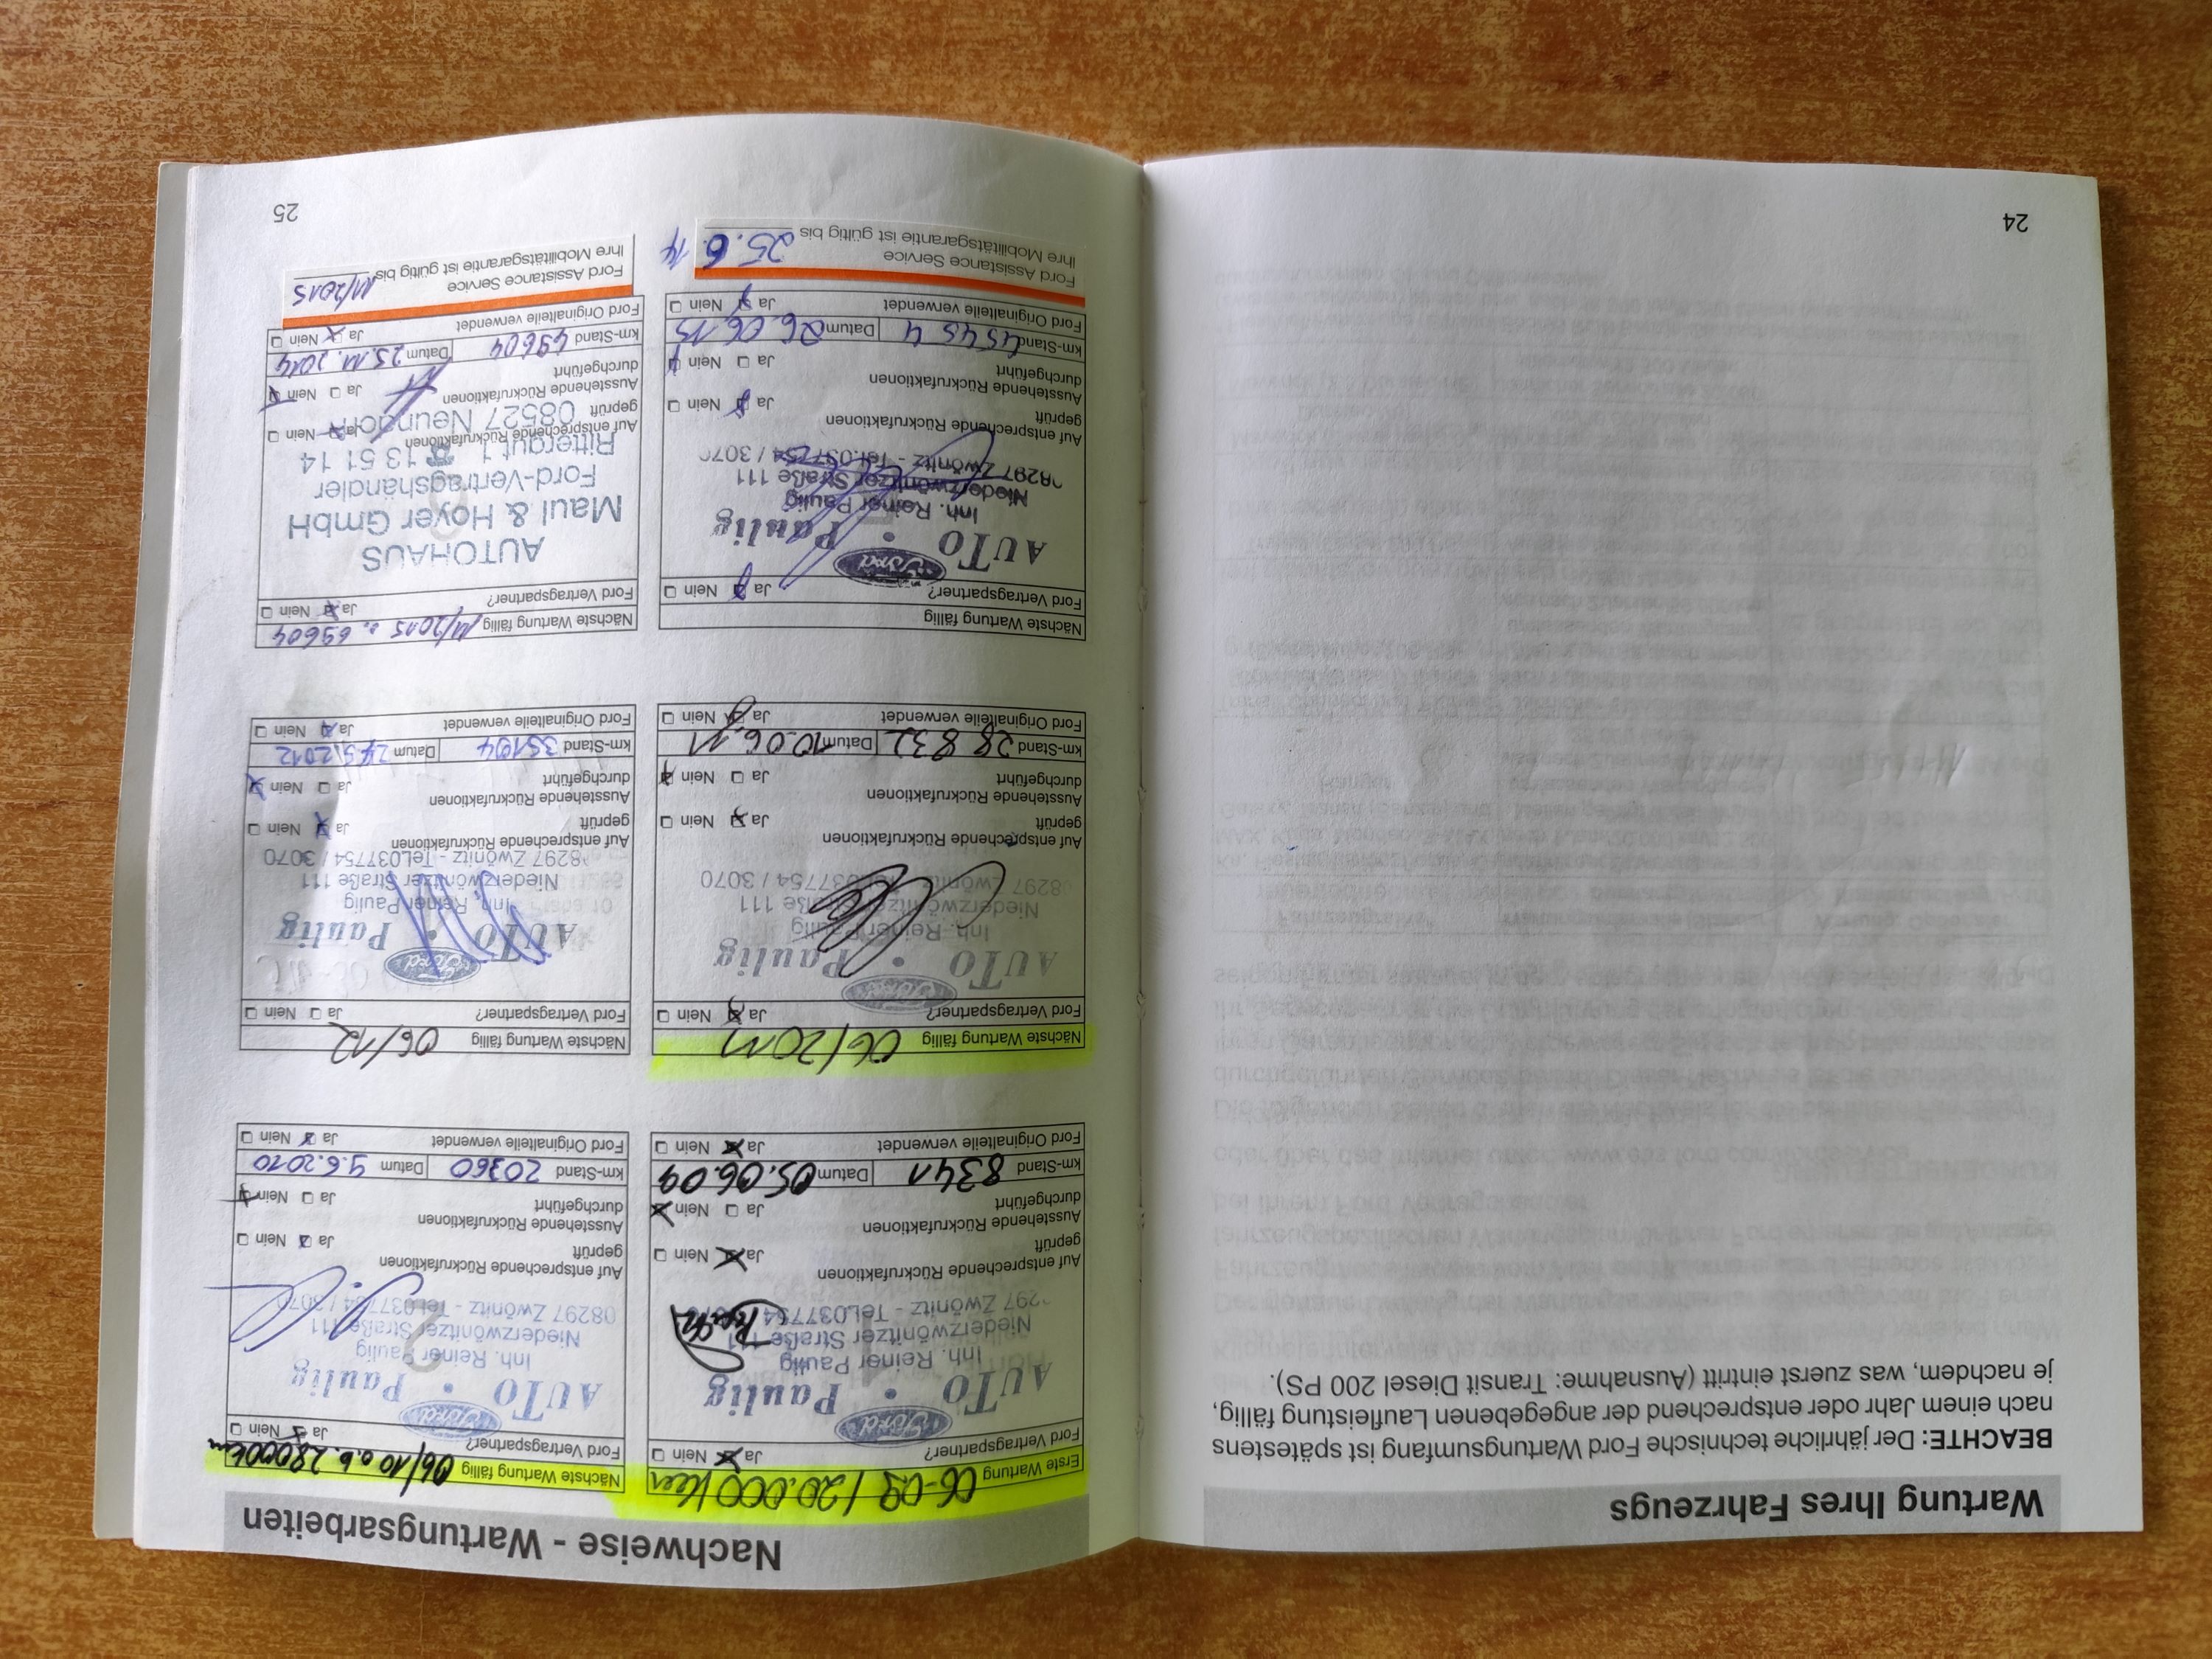 Wartung Ihres Fahrzeugs
BEACHTE: Der jährliche technische Ford Wartungsumfang ist spätestens
nach einem Jahr oder entsprechend der angegebenen Laufleistung fällig,
je nachdem, was zuerst eintritt (Ausnahme: Transit Diesel 200 PS).
24
Nachweise - Wartungsarbeiten
Erste Wartung 06-09 / 20.000 km
Ford Vertragspartner? Ja Nein
Ford
AUTO • Paulig
Inh. Reiner Paulig
Niederzwönitzer Straße 111
297 Zwönitz - Tel.037754
Auf entsprechende Rückrufaktionen
geprüft Ja Nein
Ausstehende Rückrufaktionen
durchgeführt Ja Nein
km-Stand 8341 Datum 05.06.09
Ford Originalteile verwendet Ja Nein
Nächste Wartung fällig 06/10 o.b. 28000km
Ford Vertragspartner? Ja Nein
Ford
AUTO • Paulig
Inh. Reiner Paulig
Niederzwönitzer Straße 111
08297 Zwönitz - Tel.037754 / 3070
Auf entsprechende Rückrufaktionen
geprüft Ja Nein
Ausstehende Rückrufaktionen
durchgeführt Ja Nein
km-Stand 20360 Datum 9.6.2010
Ford Originalteile verwendet Ja Nein
Nächste Wartung fällig 06/2011
Ford Vertragspartner? Ja Nein
Ford
AUTO • Paulig
Inh. Reiner Paulig
Niederzwönitzer Straße 111
08297 Zwönitz - Tel.037754 / 3070
Auf entsprechende Rückrufaktionen
geprüft Ja Nein
Ausstehende Rückrufaktionen
durchgeführt Ja Nein
km-Stand 28 832 Datum 10.06.11
Ford Originalteile verwendet Ja Nein
Nächste Wartung fällig 06/12
Ford Vertragspartner? Ja Nein
Ford
AUTO • Paulig
Inh. Reiner Paulig
Niederzwönitzer Straße 111
8297 Zwönitz - Tel.037754 / 3070
Auf entsprechende Rückrufaktionen
geprüft Ja Nein
Ausstehende Rückrufaktionen
durchgeführt Ja Nein
km-Stand Datum
Ford Originalteile verwendet Ja Nein
Nächste Wartung fällig
Ford Vertragspartner? Ja Nein
Ford
AUTO • Paulig
Inh. Reiner Paulig
Niederzwönitzer Straße 111
8297 Zwönitz - Tel.037754 / 3070
Auf entsprechende Rückrufaktionen
geprüft Ja Nein
Ausstehende Rückrufaktionen
durchgeführt Ja Nein
km-Stand 4545 4 Datum 26.06.13
Ford Originalteile verwendet Ja Nein
Ford Assistance Service
Ihre Mobilitätsgarantie ist gültig bis 25.6.14
Nächste Wartung fällig 11/2015 o. 69604
Ford Vertragspartner? Ja Nein
AUTOHAUS
Maul & Hoyer GmbH
Ford-Vertragshändler
Rittergut 1 ☎ 13 51 14
08527 Neundorf
Auf entsprechende Rückrufaktionen
geprüft Ja Nein
Ausstehende Rückrufaktionen
durchgeführt Ja Nein
km-Stand 49604 Datum 25.11.2014
Ford Originalteile verwendet Ja Nein
Ford Assistance Service
Ihre Mobilitätsgarantie ist gültig bis 11/2015
25